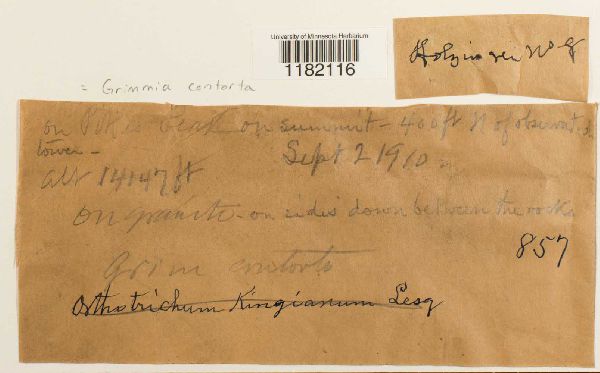 University of Minnesota Herbarium
1182116
Holzinger No 8
= Grimmia contorta
on Pikes Peak on summit - 400 ft N of observat.
tower -
Sept 2 1910
Alt 14147 ft
On granite - on sides down between the rocks
857
Grim contorta
Orthotrichum Kingianum Lesq